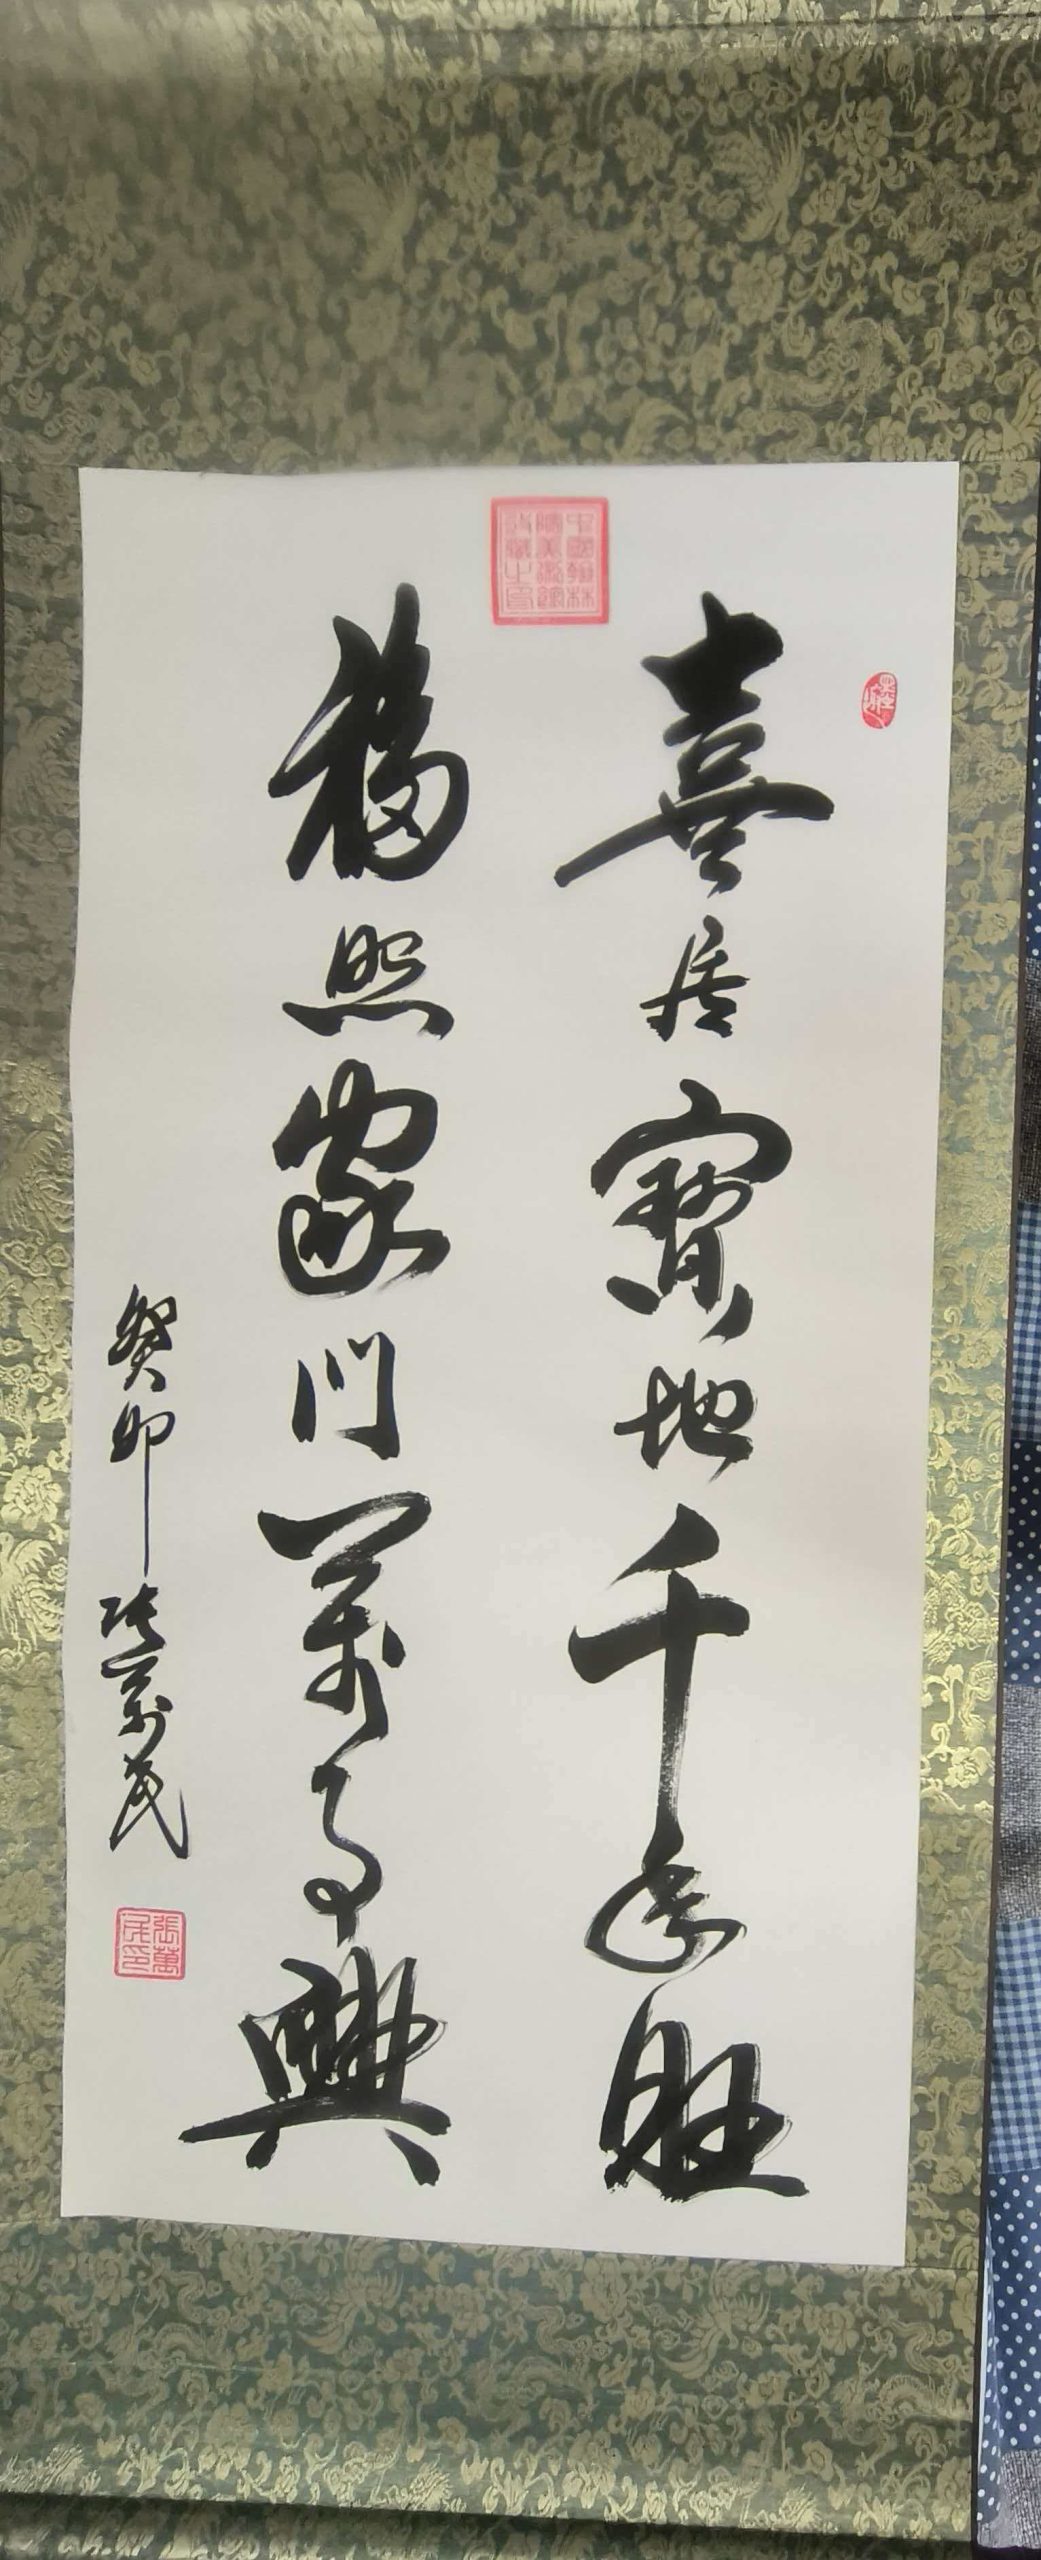 喜居寶地千年旺
福照家門萬事興
癸卯 张萬民
中國翰林院美術館收藏之印
張萬民印